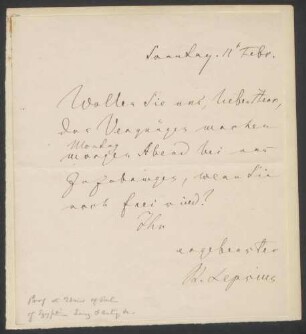 Sonntag. 11t Febr.
Wollen Sie uns, lieber Herr,
das Vergnügen machen
Montag
morgen Abend bei uns
zuzubringen, wenn Sie
noch frei sind?
Ihr
ergebenster
R. Lepsius
Prof
of Egyptian